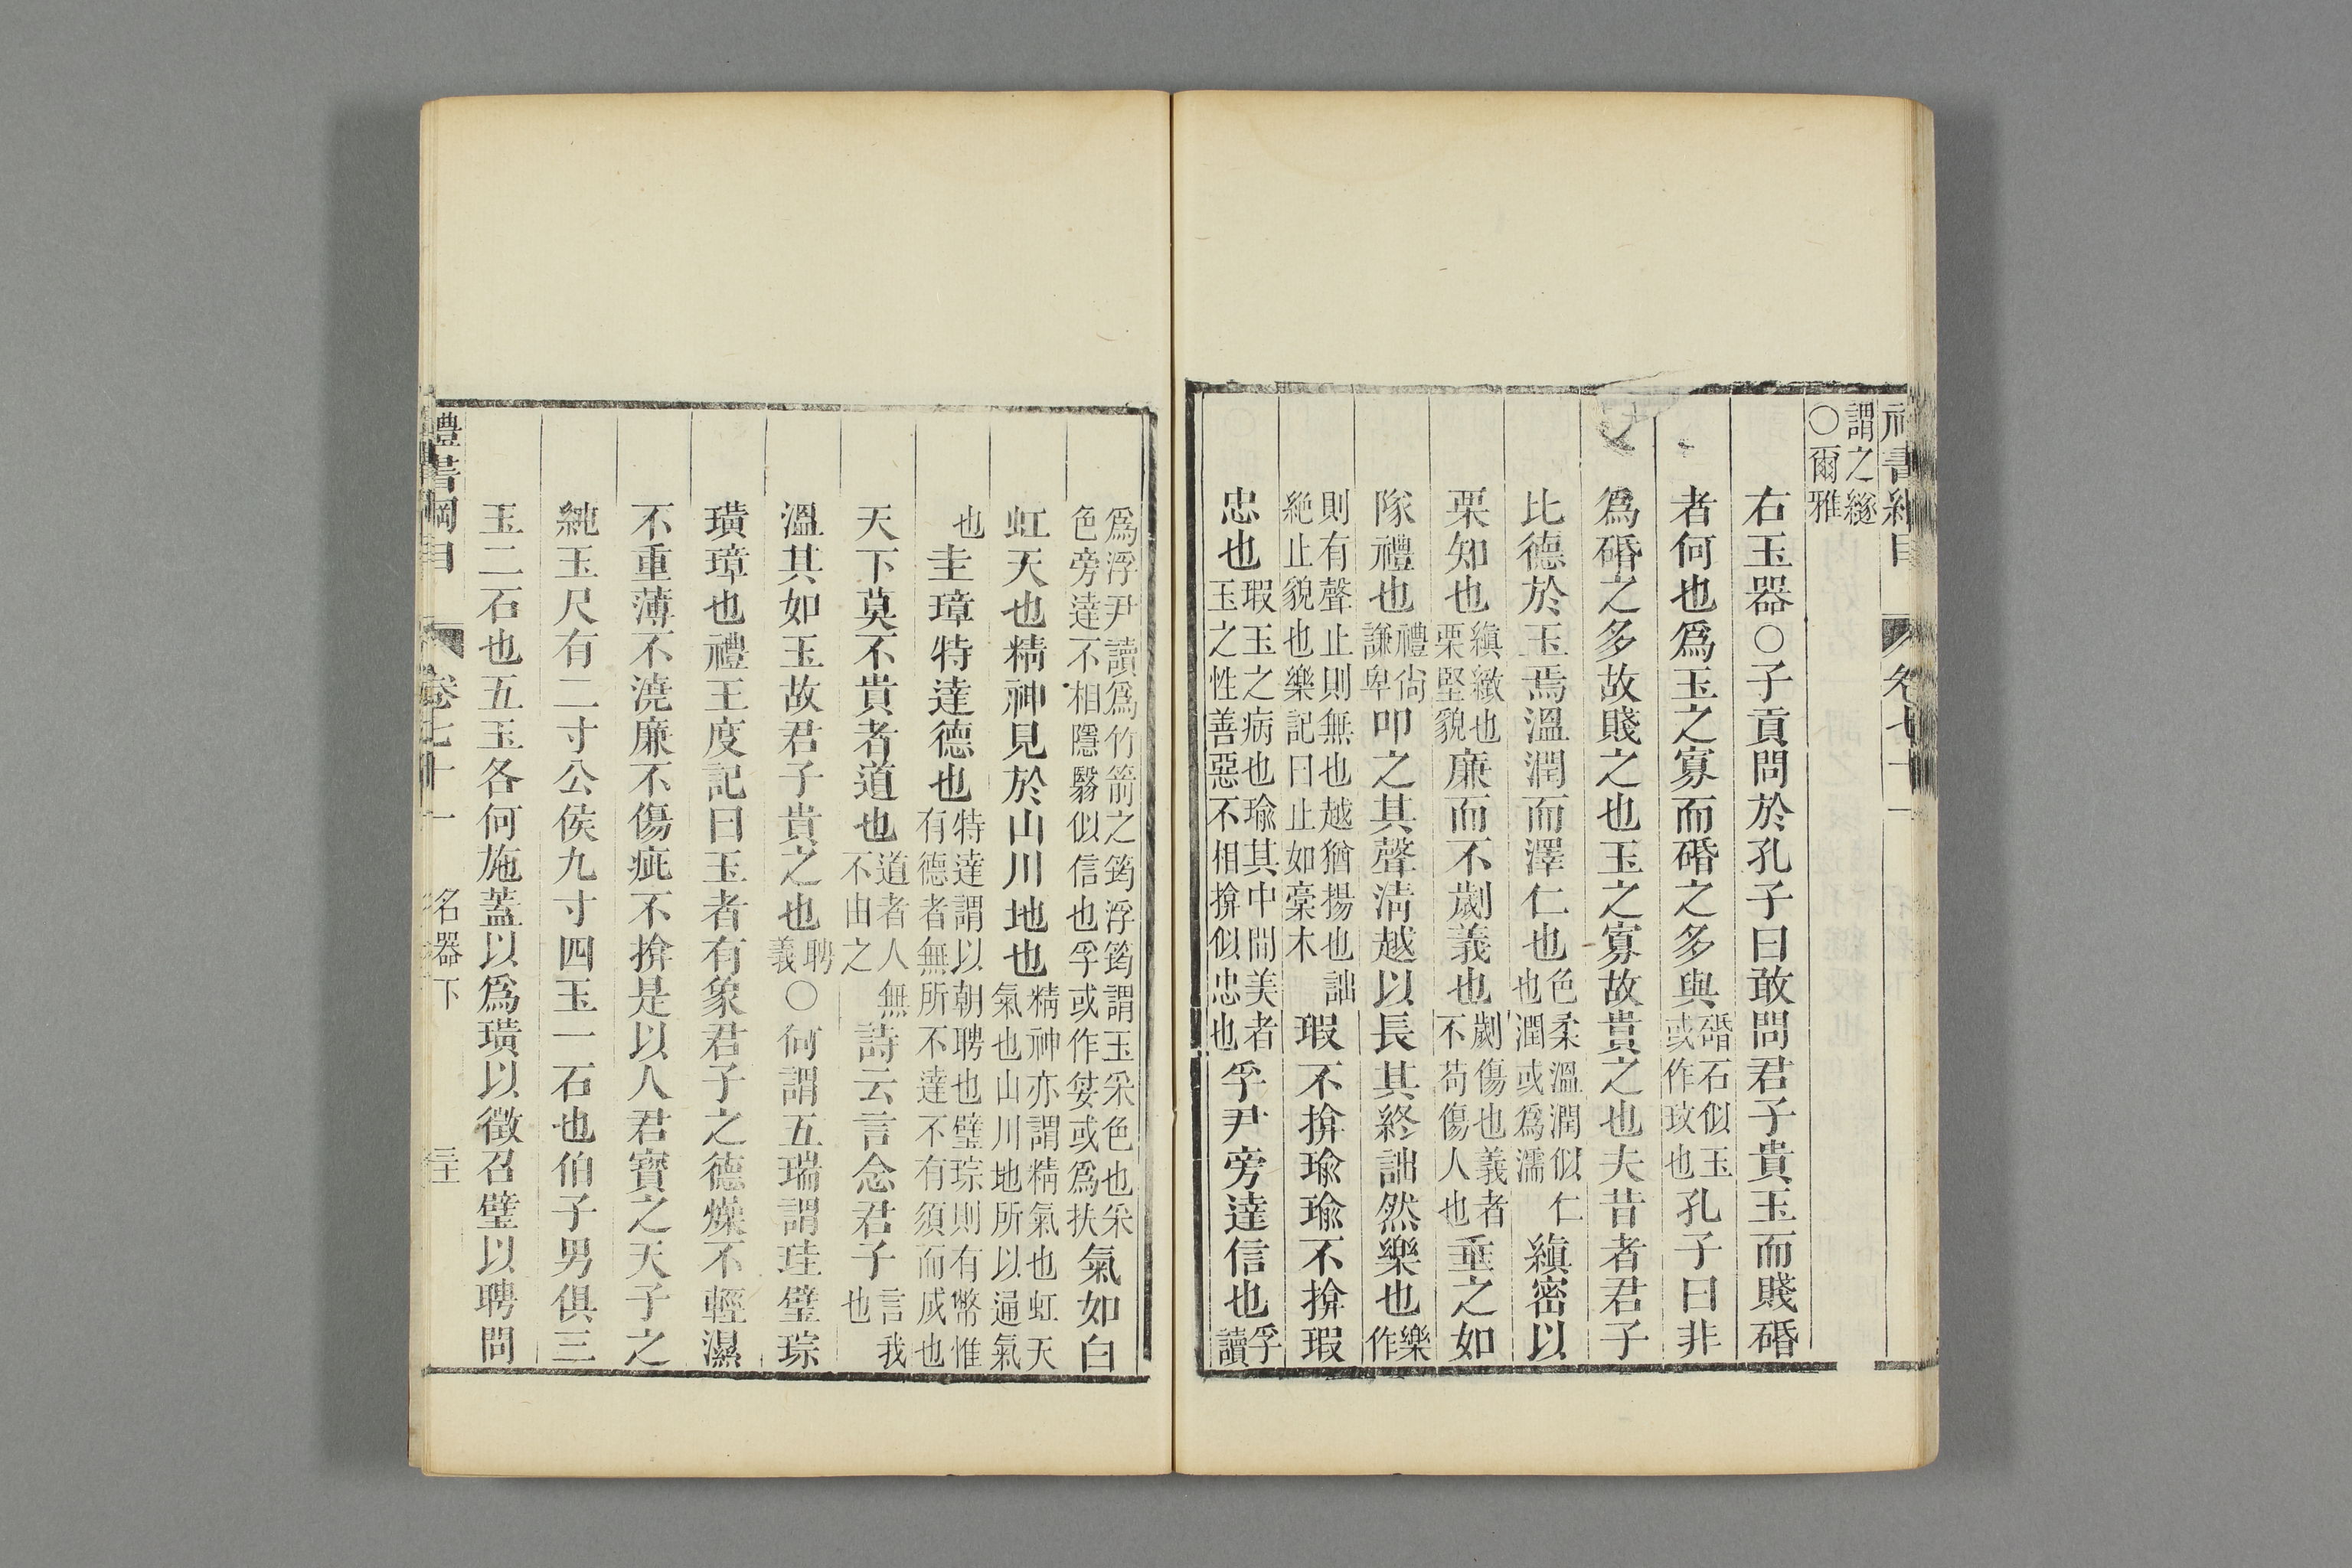 書綱目 卷七十一
謂之繸
○爾雅
右玉器○子貢問於孔子曰敢問君子貴玉而賤碈
者何也爲玉之寡而碈之多與碈石似玉或作玟也孔子曰非
爲碈之多故賤之也玉之寡故貴之也夫昔者君子
比德於玉焉溫潤而澤仁也色柔溫潤似仁也潤或爲濡縝密以
栗知也縝緻也栗堅貌廉而不劌義也劌傷也義者不苟傷人也垂之如
隊禮也禮尙謙卑叩之其聲淸越以長其終詘然樂也樂作
則有聲止則無也越猶揚也詘絶止貌也樂記曰止如槀木瑕不揜瑜瑜不揜瑕
忠也瑕玉之病也瑜其中閒美者玉之性善惡不相揜似忠也孚尹旁達信也孚讀
爲浮尹讀爲竹箭之筠浮筠謂玉采色也采色旁達不相隱翳似信也孚或作姇或爲扶氣如白
虹天也精神見於山川地也精神亦謂精氣也虹天氣也山川地所以通氣
也圭璋特達德也特達謂以朝聘也璧琮則有幣惟有德者無所不達不有須而成也
天下莫不貴者道也道者人無不由之詩云言念君子言我也
溫其如玉故君子貴之也聘義○何謂五瑞謂珪璧琮
璜璋也禮王度記曰玉者有象君子之德燥不輕濕
不重薄不澆廉不傷疵不揜是以人君寶之天子之
純玉尺有二寸公侯九寸四玉一石也伯子男俱三
玉二石也五玉各何施蓋以爲璜以徵召璧以聘問
禮書綱目 卷七十一 名器下 三十